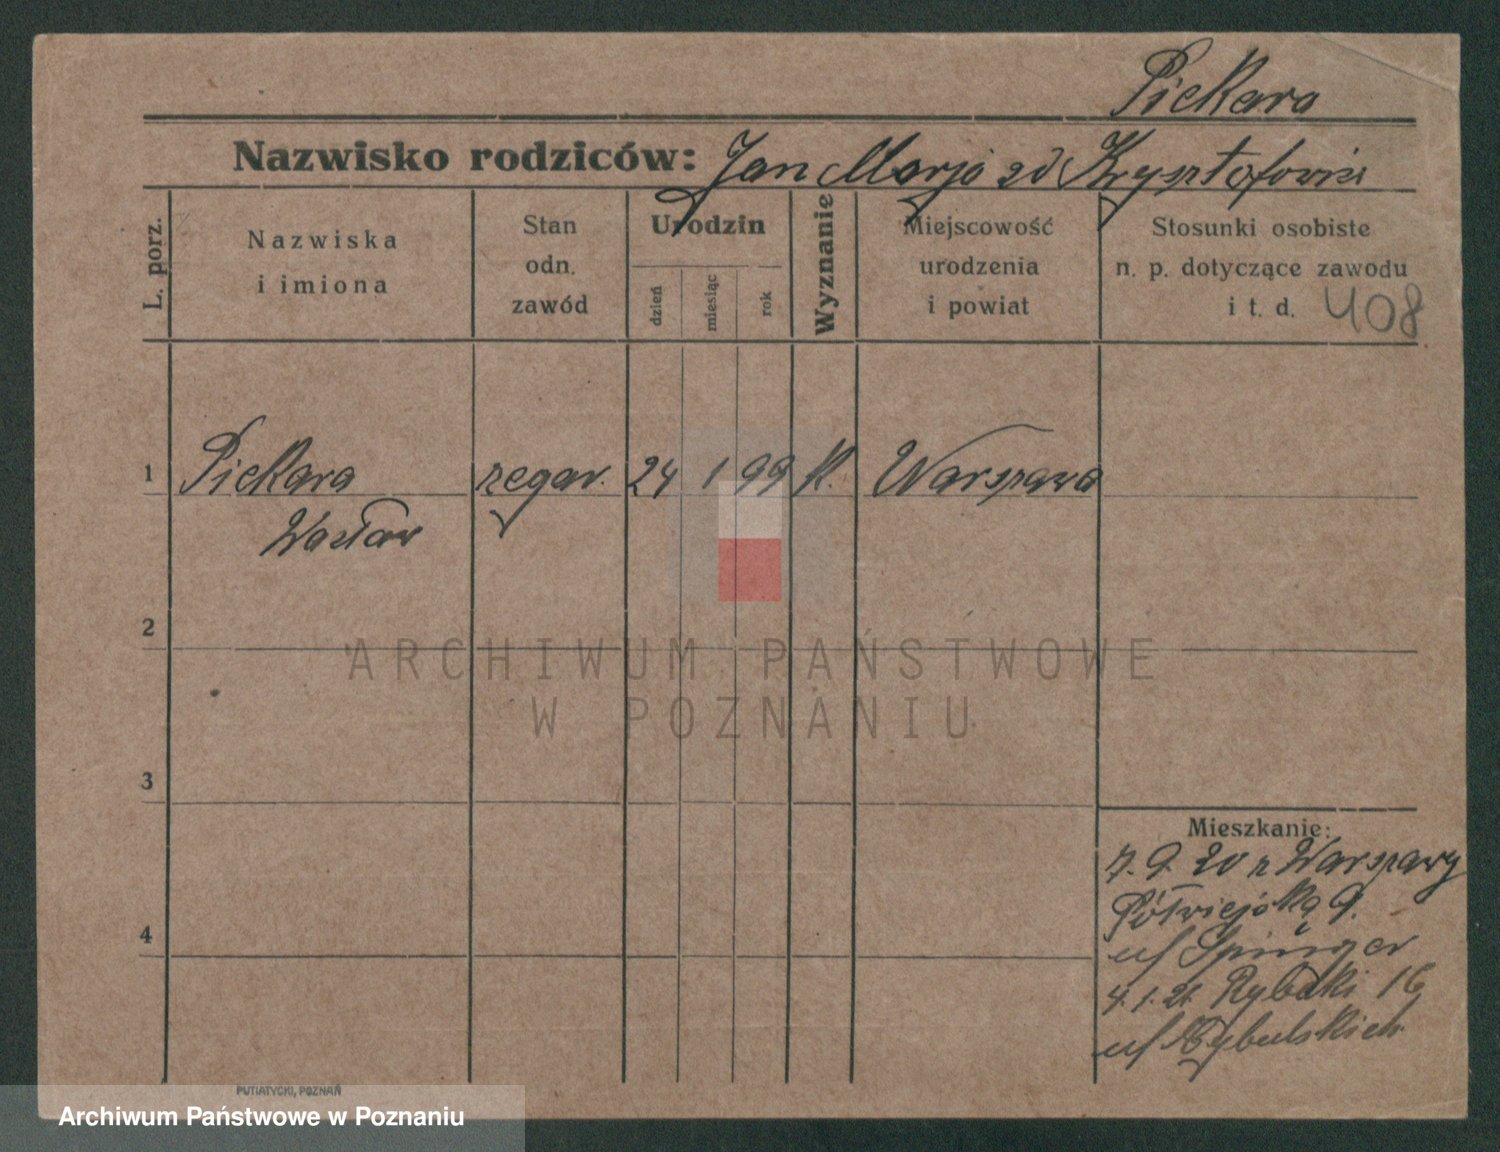 Piekara
Nazwisko rodziców: Jan Marja zd Krysztofowicz
L. porz.
Nazwiska
i imiona
Stan
odn.
zawód
Urodzin
dzień
miesiąc
rok
Wyznanie
Miejscowość
urodzenia
i powiat
Stosunki osobiste
n. p. dotyczące zawodu
i t. d. 408
1 Piekara zegar. 24 1 99 K. Warszawa
Wacław
2
3
4
ARCHIWUM PAŃSTWOWE
W POZNANIU
Mieszkanie:
7.9.20 z Warszawy
Półwiejska 9.
u/ Spinger
4.1.21. Rybaki 16
u/ Cybulskich
PUTIATYCKI, POZNAŃ
Archiwum Państwowe w Poznaniu